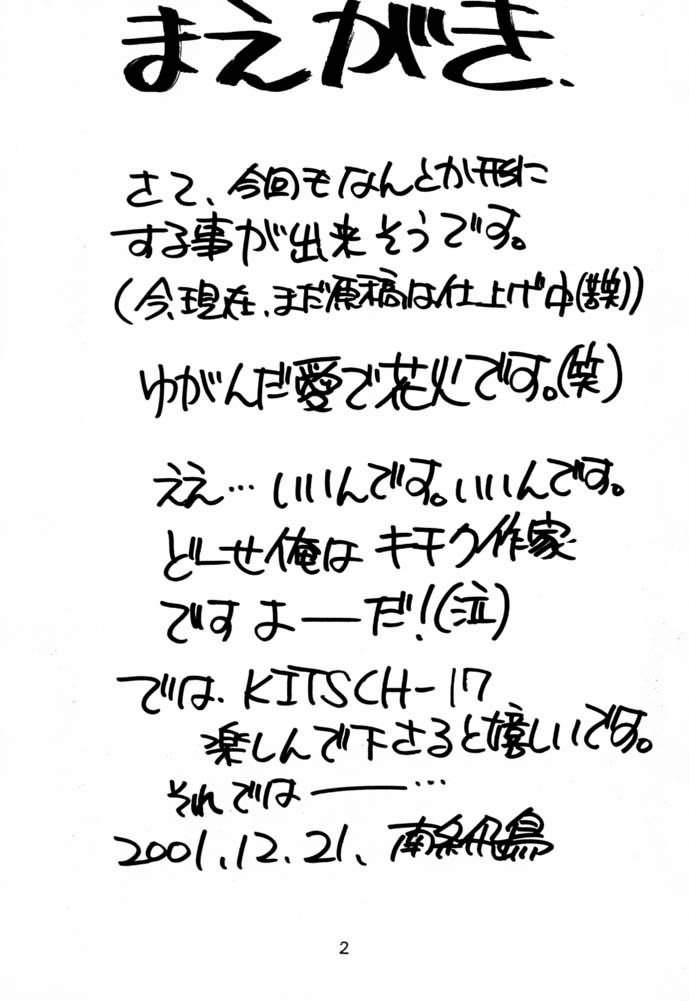 まえがき、
さて、今回もなんとか形に
する事が出来そうです。
(今、現在、まだ原稿は仕上げ中(苦笑))
ゆがんだ愛で花火です。(笑)
ええ…いいんです。いいんです。
どーせ俺はキモク作家
ですよーだ!(泣)
では、KITSCH-17
楽しんで下さると嬉しいです。
それではー…
2001.12.21、南条飛鳥
2